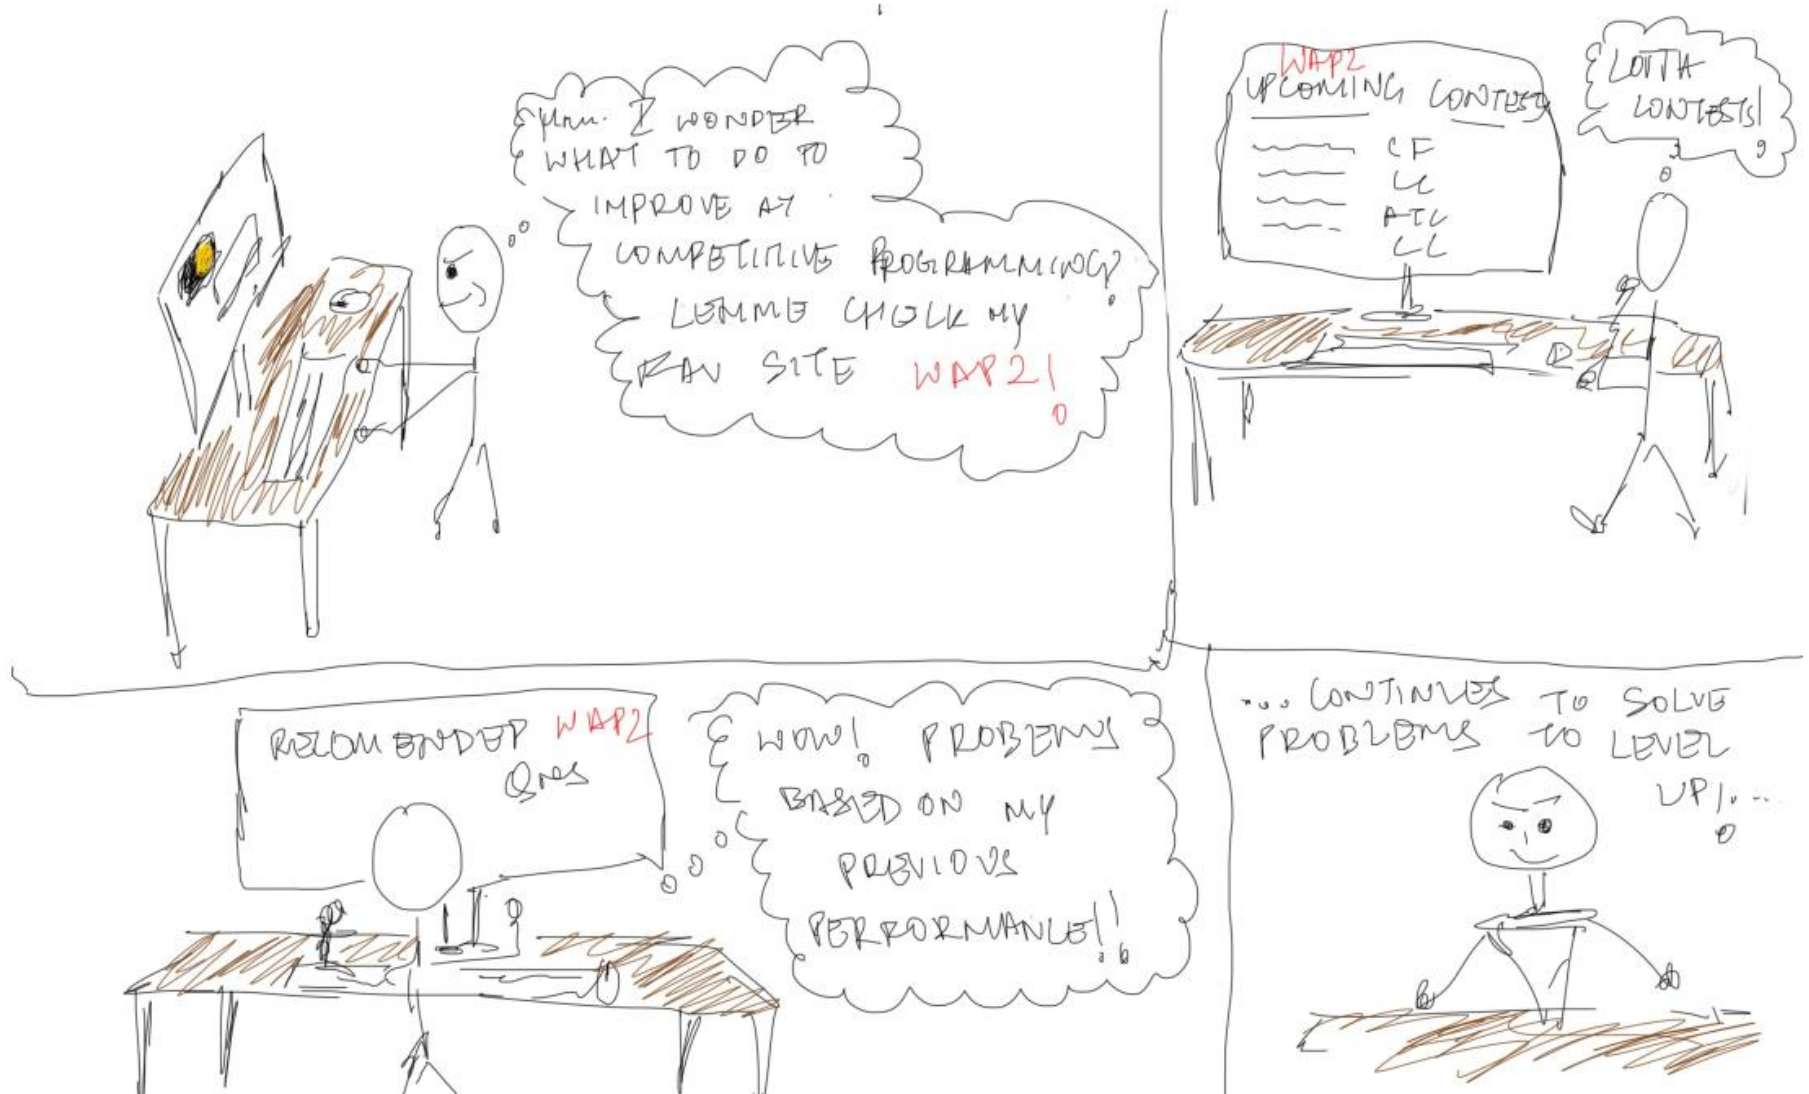 Hmm. I WONDER
WHAT TO DO TO
IMPROVE AT
COMPETITIVE PROGRAMMING?
LEMME CHECK MY
FAV SITE WAP2!
WAP2
UPCOMING CONTESTS
CF
LC
ATC
CC
LOTTA
CONTESTS!
RECOMENDED WAP2
Qnes
WOW! PROBEMS
BASED ON MY
PREVIOUS
PERFORMANCE!!
... CONTINUES TO SOLVE
PROBLEMS TO LEVEL
UP!...